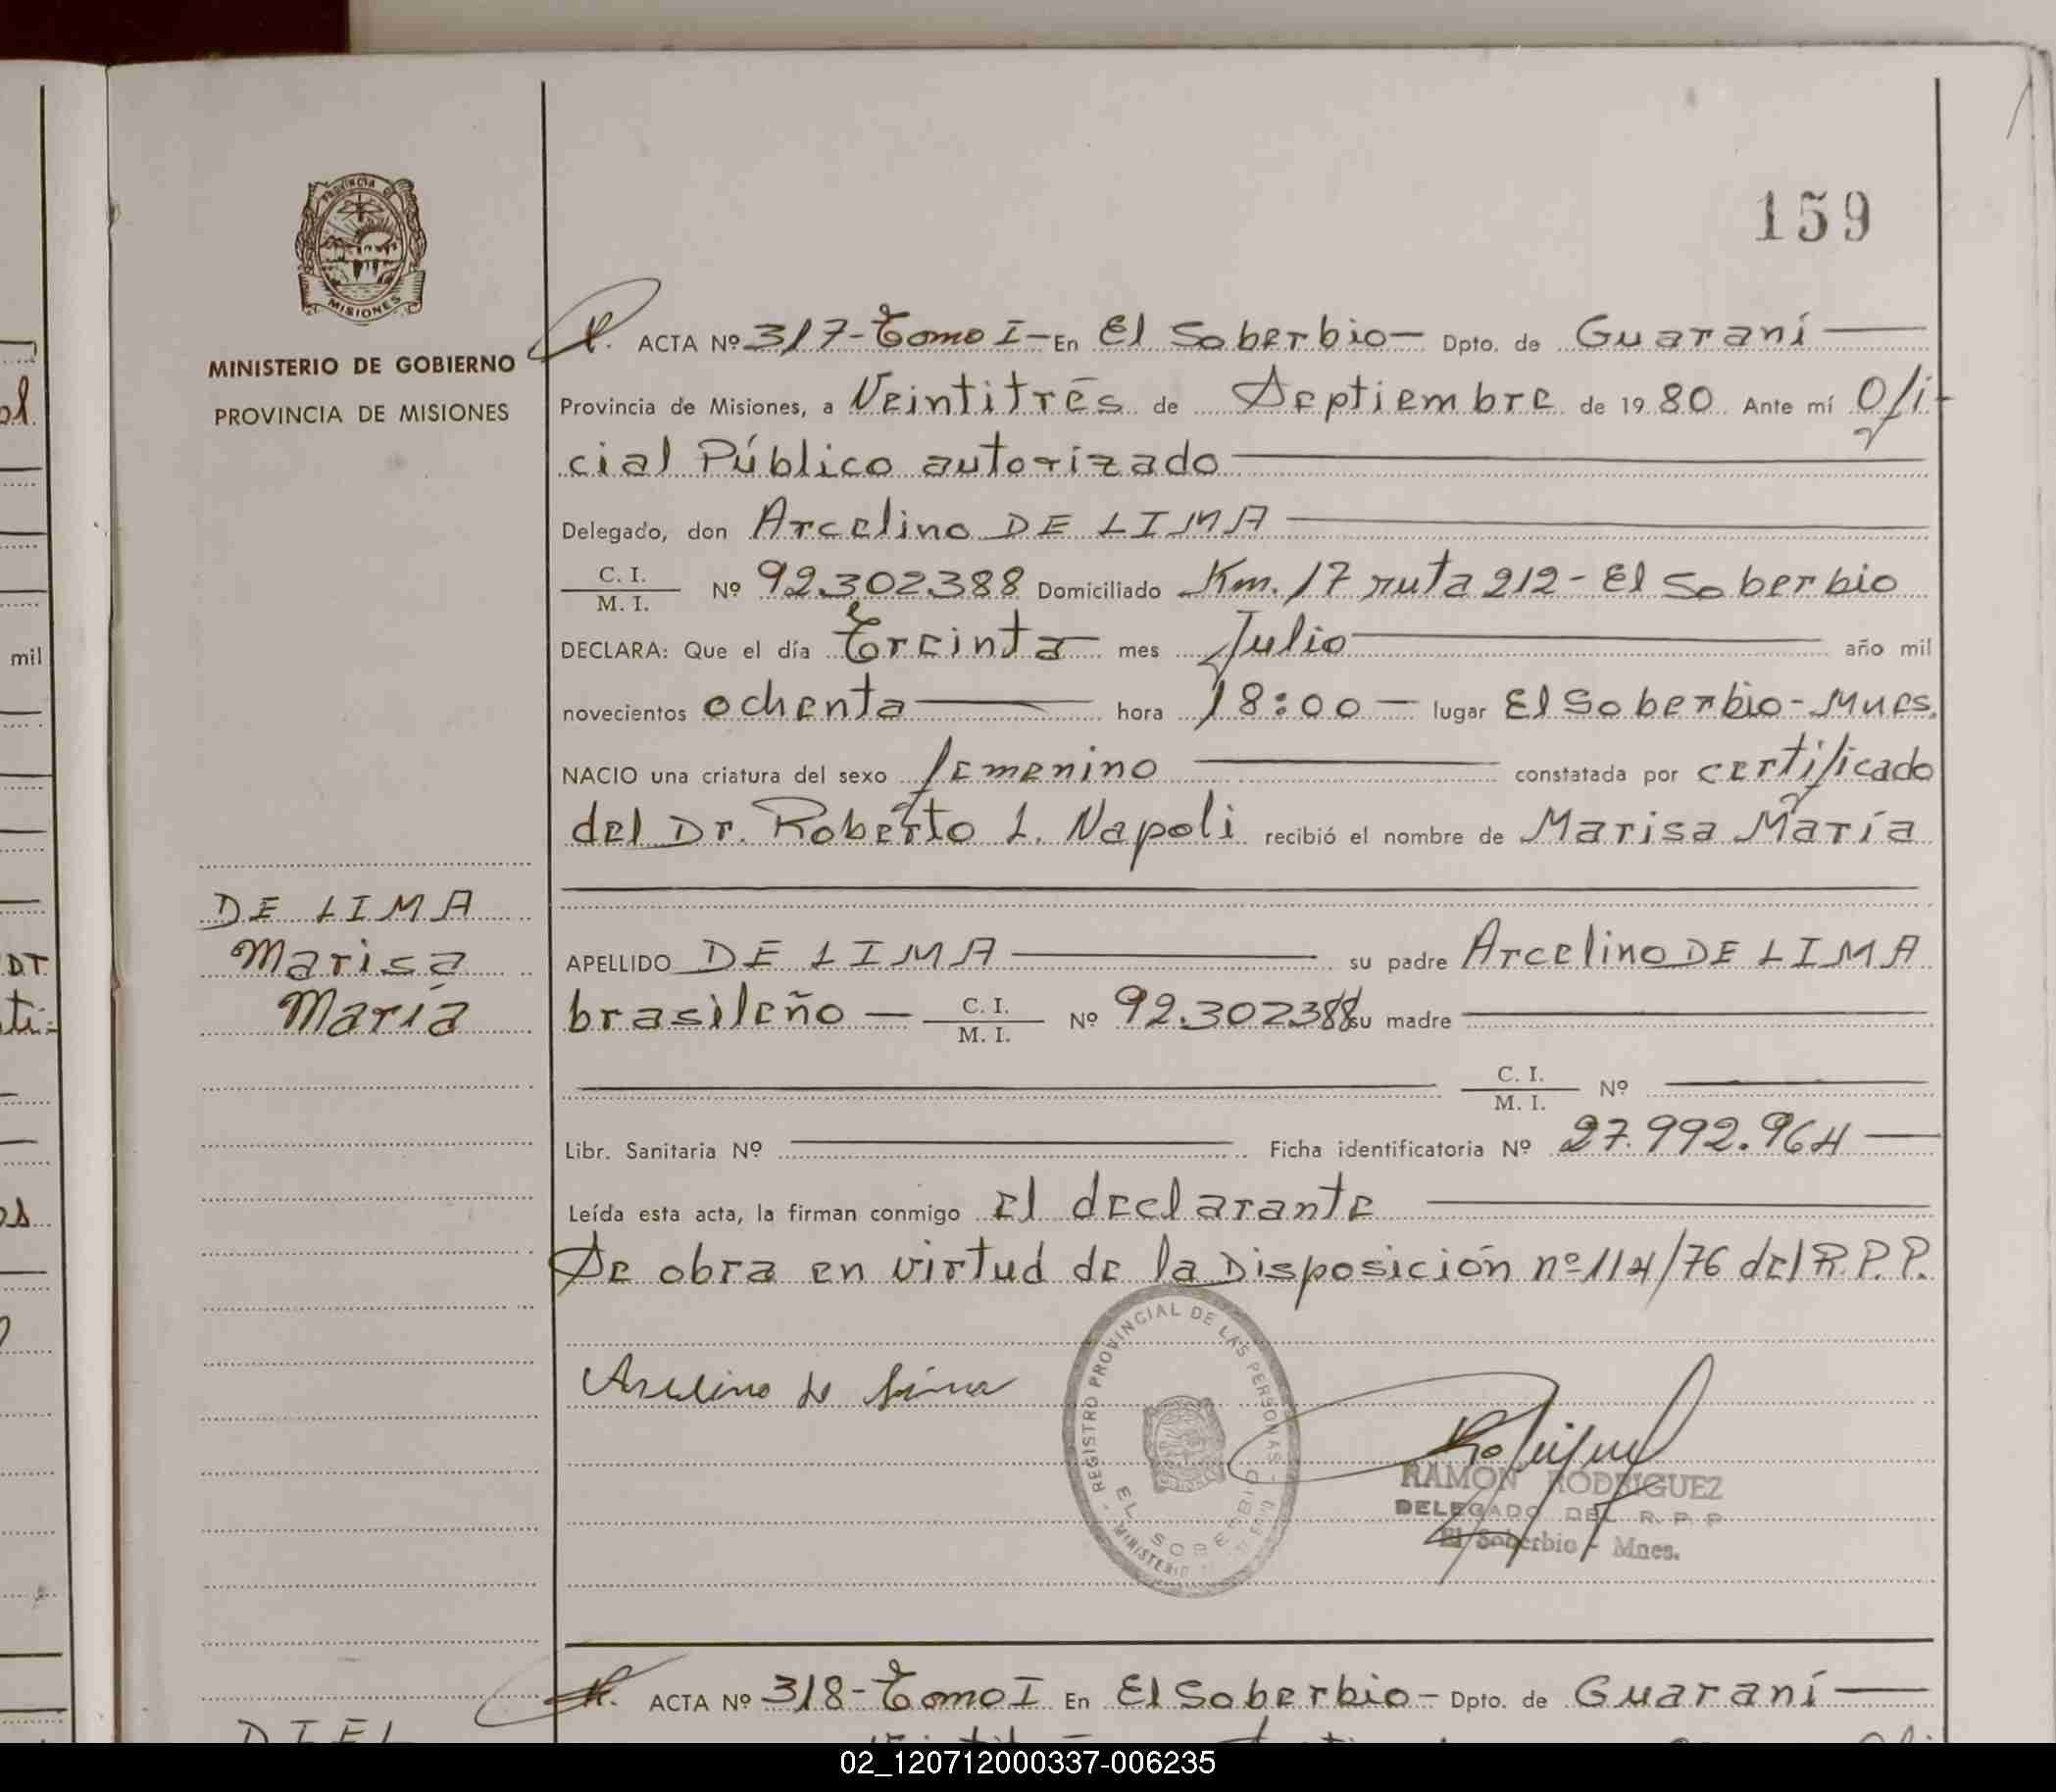 159
PROVINCIA DE
MISIONES
MINISTERIO DE GOBIERNO
PROVINCIA DE MISIONES
ACTA Nº 317-Tomo I- En El Soberbio- Dpto. de Guaraní
Provincia de Misiones, a Veintitrés de Septiembre de 1980. Ante mí Ofi-
cial Público autorizado
Delegado, don Arcelino DE LIMA
C. I.
M. I. Nº 92.302.388 Domiciliado Km. 17 ruta 212- El Soberbio
DECLARA: Que el día Treinta mes Julio año mil
novecientos ochenta hora 18:00 lugar El Soberbio-Mnes.
NACIO una criatura del sexo femenino constatada por certificado
del Dr. Roberto L. Napoli recibió el nombre de Marisa María
DE LIMA
Marisa
María
APELLIDO DE LIMA su padre Arcelino DE LIMA
brasileño — C. I.
M. I. Nº 92.302388 su madre
C. I.
M. I. Nº
Libr. Sanitaria Nº Ficha identificatoria Nº 27.992.964
Leída esta acta, la firman conmigo el declarante
Se obra en virtud de la Disposición nº 114/76 del R.P.P.
Arcelino de Lima
REGISTRO PROVINCIAL DE LAS PERSONAS
EL SOBERBIO
MINISTERIO
RAMON RODRIGUEZ
DELEGADO DEL R. P. P
El Soberbio - Mnes.
ACTA Nº 318-Tomo I En El Soberbio- Dpto. de Guaraní
DIEL
mil
02_120712000337-006235